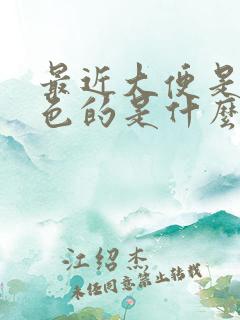 最近大便是
色的是什麼
江绍杰
未经同意禁止转载